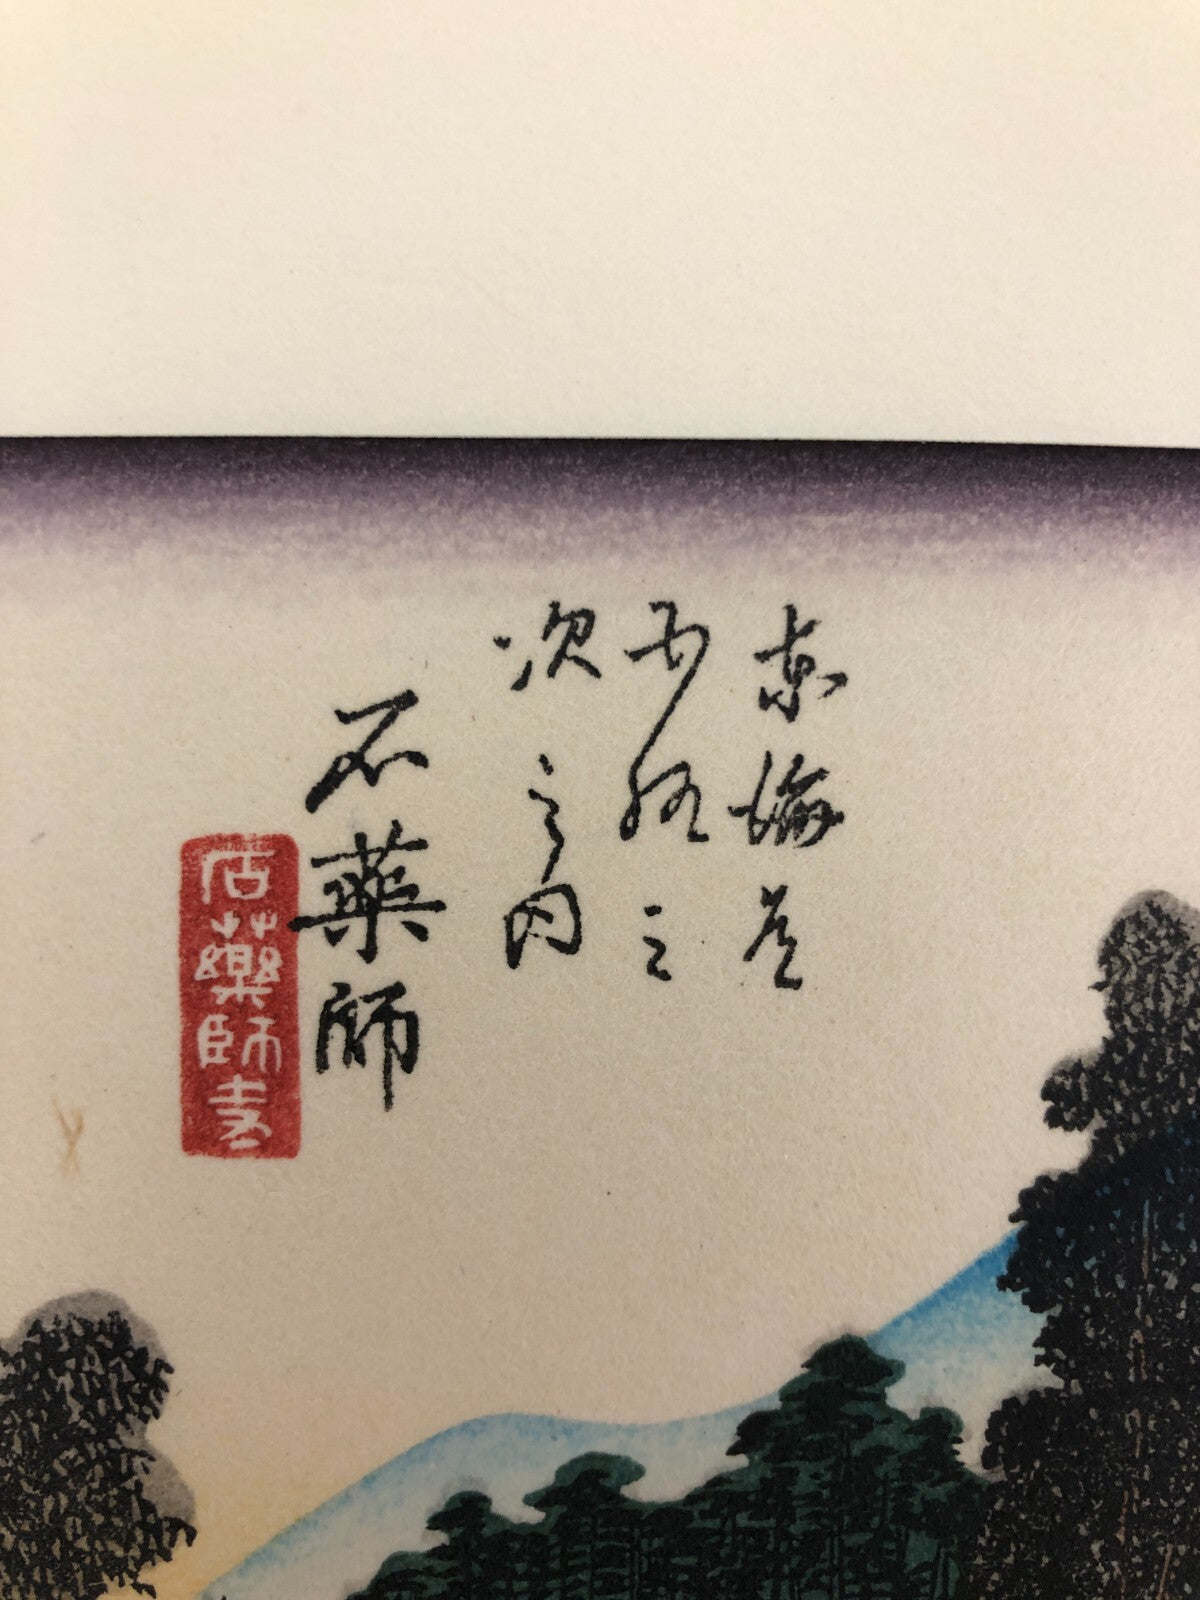 東海道
五拾三
次之内
石薬師
石藥師寺